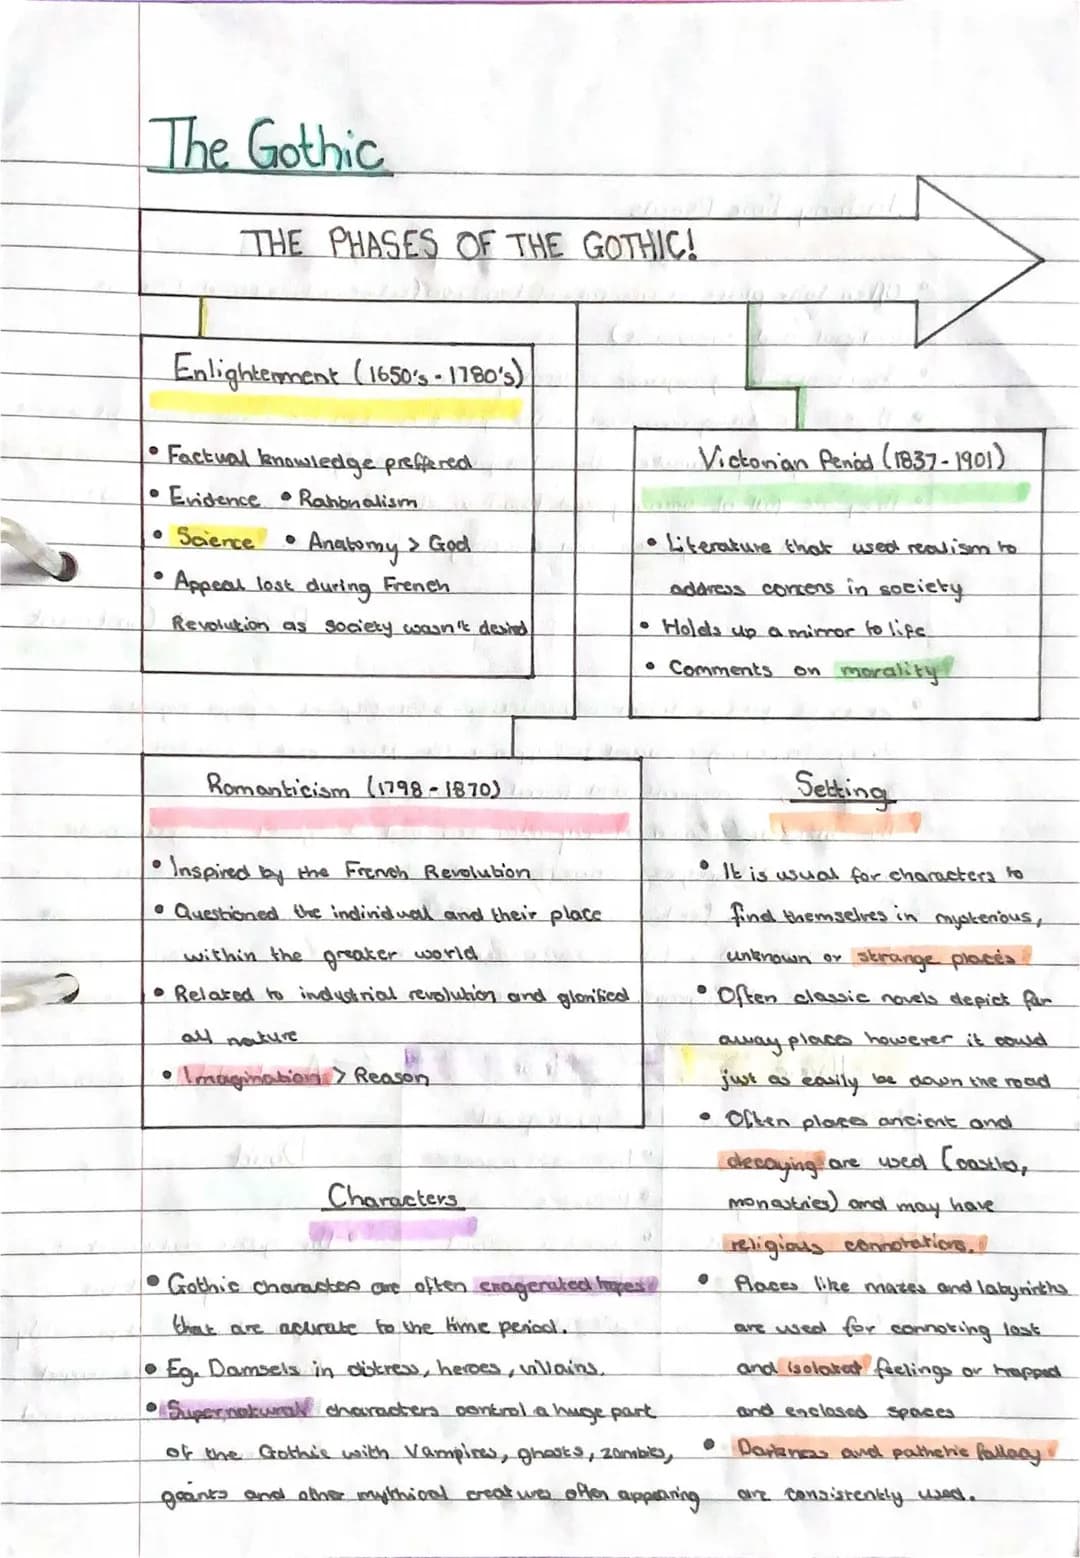 The Gothic
THE PHASES OF THE GOTHIC!
Enlightenment (1650's - 1780's)
• Factual knowledge preffered
• Evidence • Rationalism
• Science • Anatomy > God
• Appeal lost during French
Revolution as society wasn't desired
Victorian Period (1837-1901)
• Literature that used realism to
address concens in society
• Holds up a mirror to life
• Comments on morality
Romanticism (1798-1870)
• Inspired by the French Revolution
• Questioned the individual and their place
within the greater world
• Related to industrial revolution and glorified
all nature
• Imagination > Reason
Characters
• Gothic characters are often exagerated tropes
that are acurate to the time period.
• Eg. Damsels in distress, heroes, villains.
• Supernatural characters control a huge part
of the Gothic with Vampires, ghosts, zombies,
geants and other mythical creatures often appearing
Setting
• It is usual for characters to
find themselves in mysterious,
unknown or strange places
• Often classic novels depict far
away places however it could
just as easily be down the road
• Often places ancient and
decaying are used (castles,
monastries) and may have
religious connotations.
• Places like mazes and labyrinths
are used for connoting lost
and isolated feelings or trapped
and enclosed spaces
• Darkness and pathetic fallacy
are consistently used.